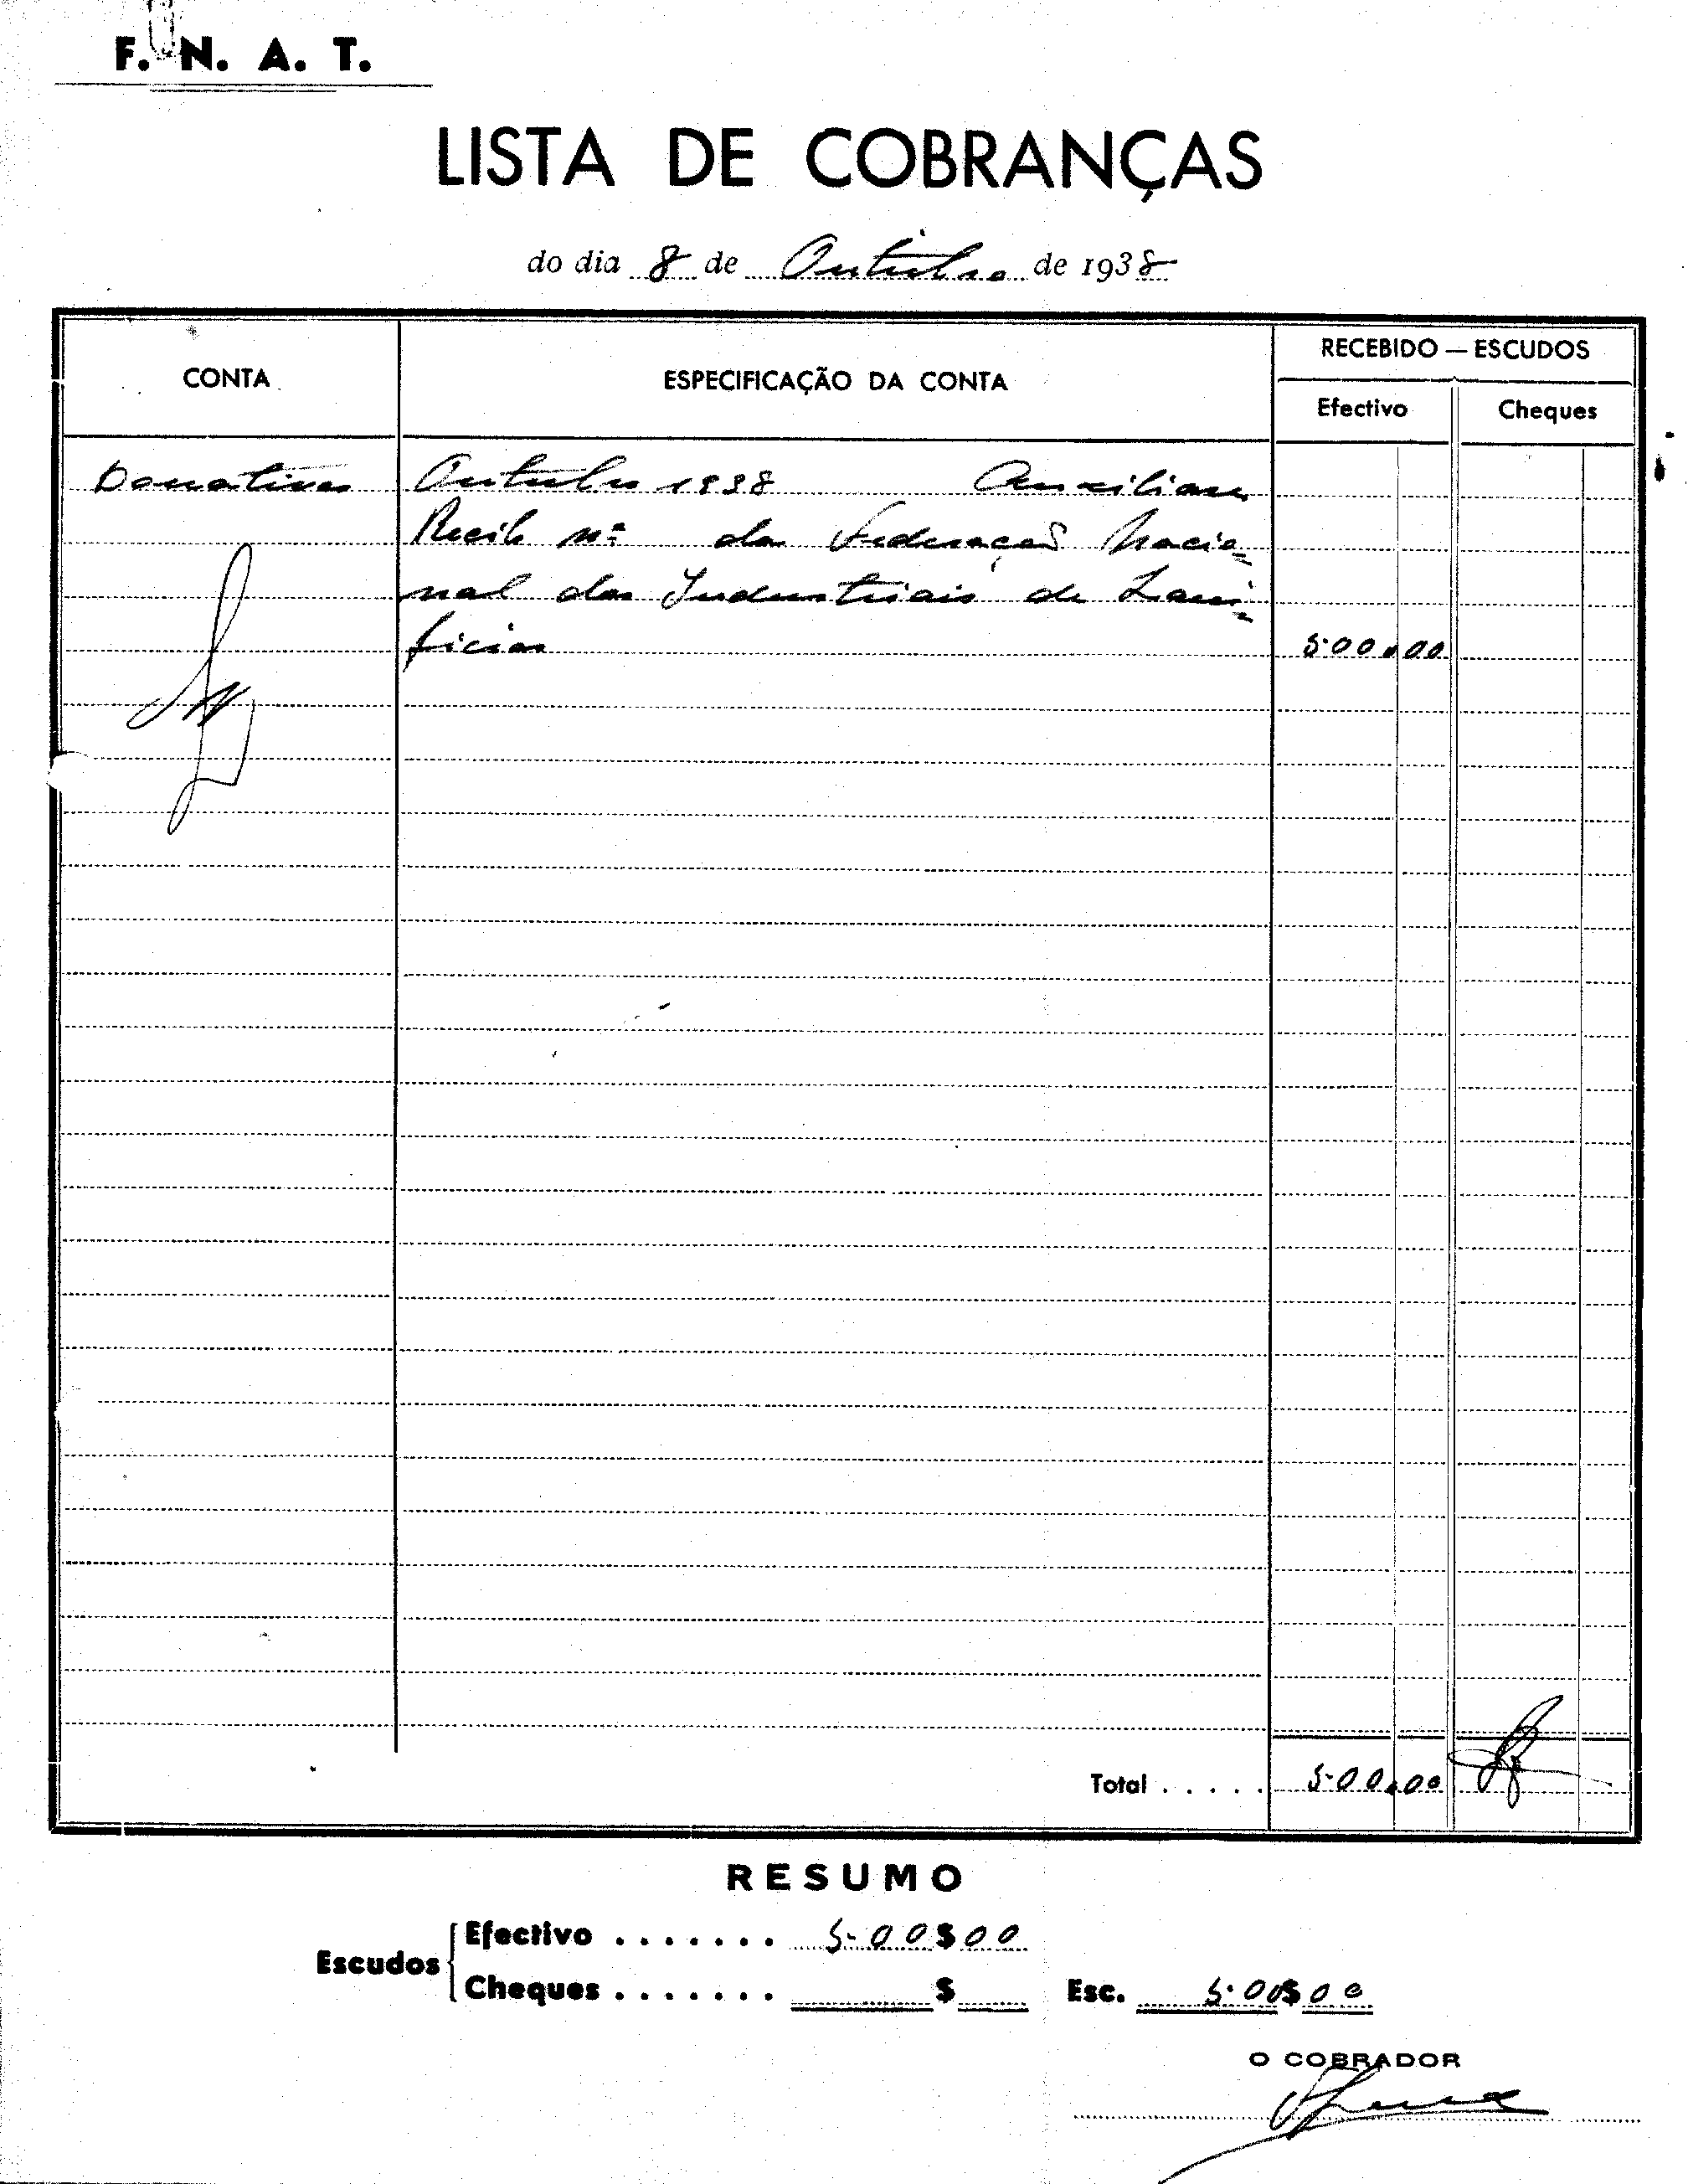 F. N. A. T.
LISTA DE COBRANÇAS
do dia 8 de Outubro de 1938
CONTA
ESPECIFICAÇÃO DA CONTA
RECEBIDO — ESCUDOS
Efectivo
Cheques
Donativos Outubro 1938 Auxiliares
Recibo nº da Federação Nacio-
nal dos Industriais de Lani-
ficios 500.00
Total ..... 500.00
RESUMO
Escudos
Efectivo ....... 500$00
Cheques ....... $ Esc. 500$00
O COBRADOR